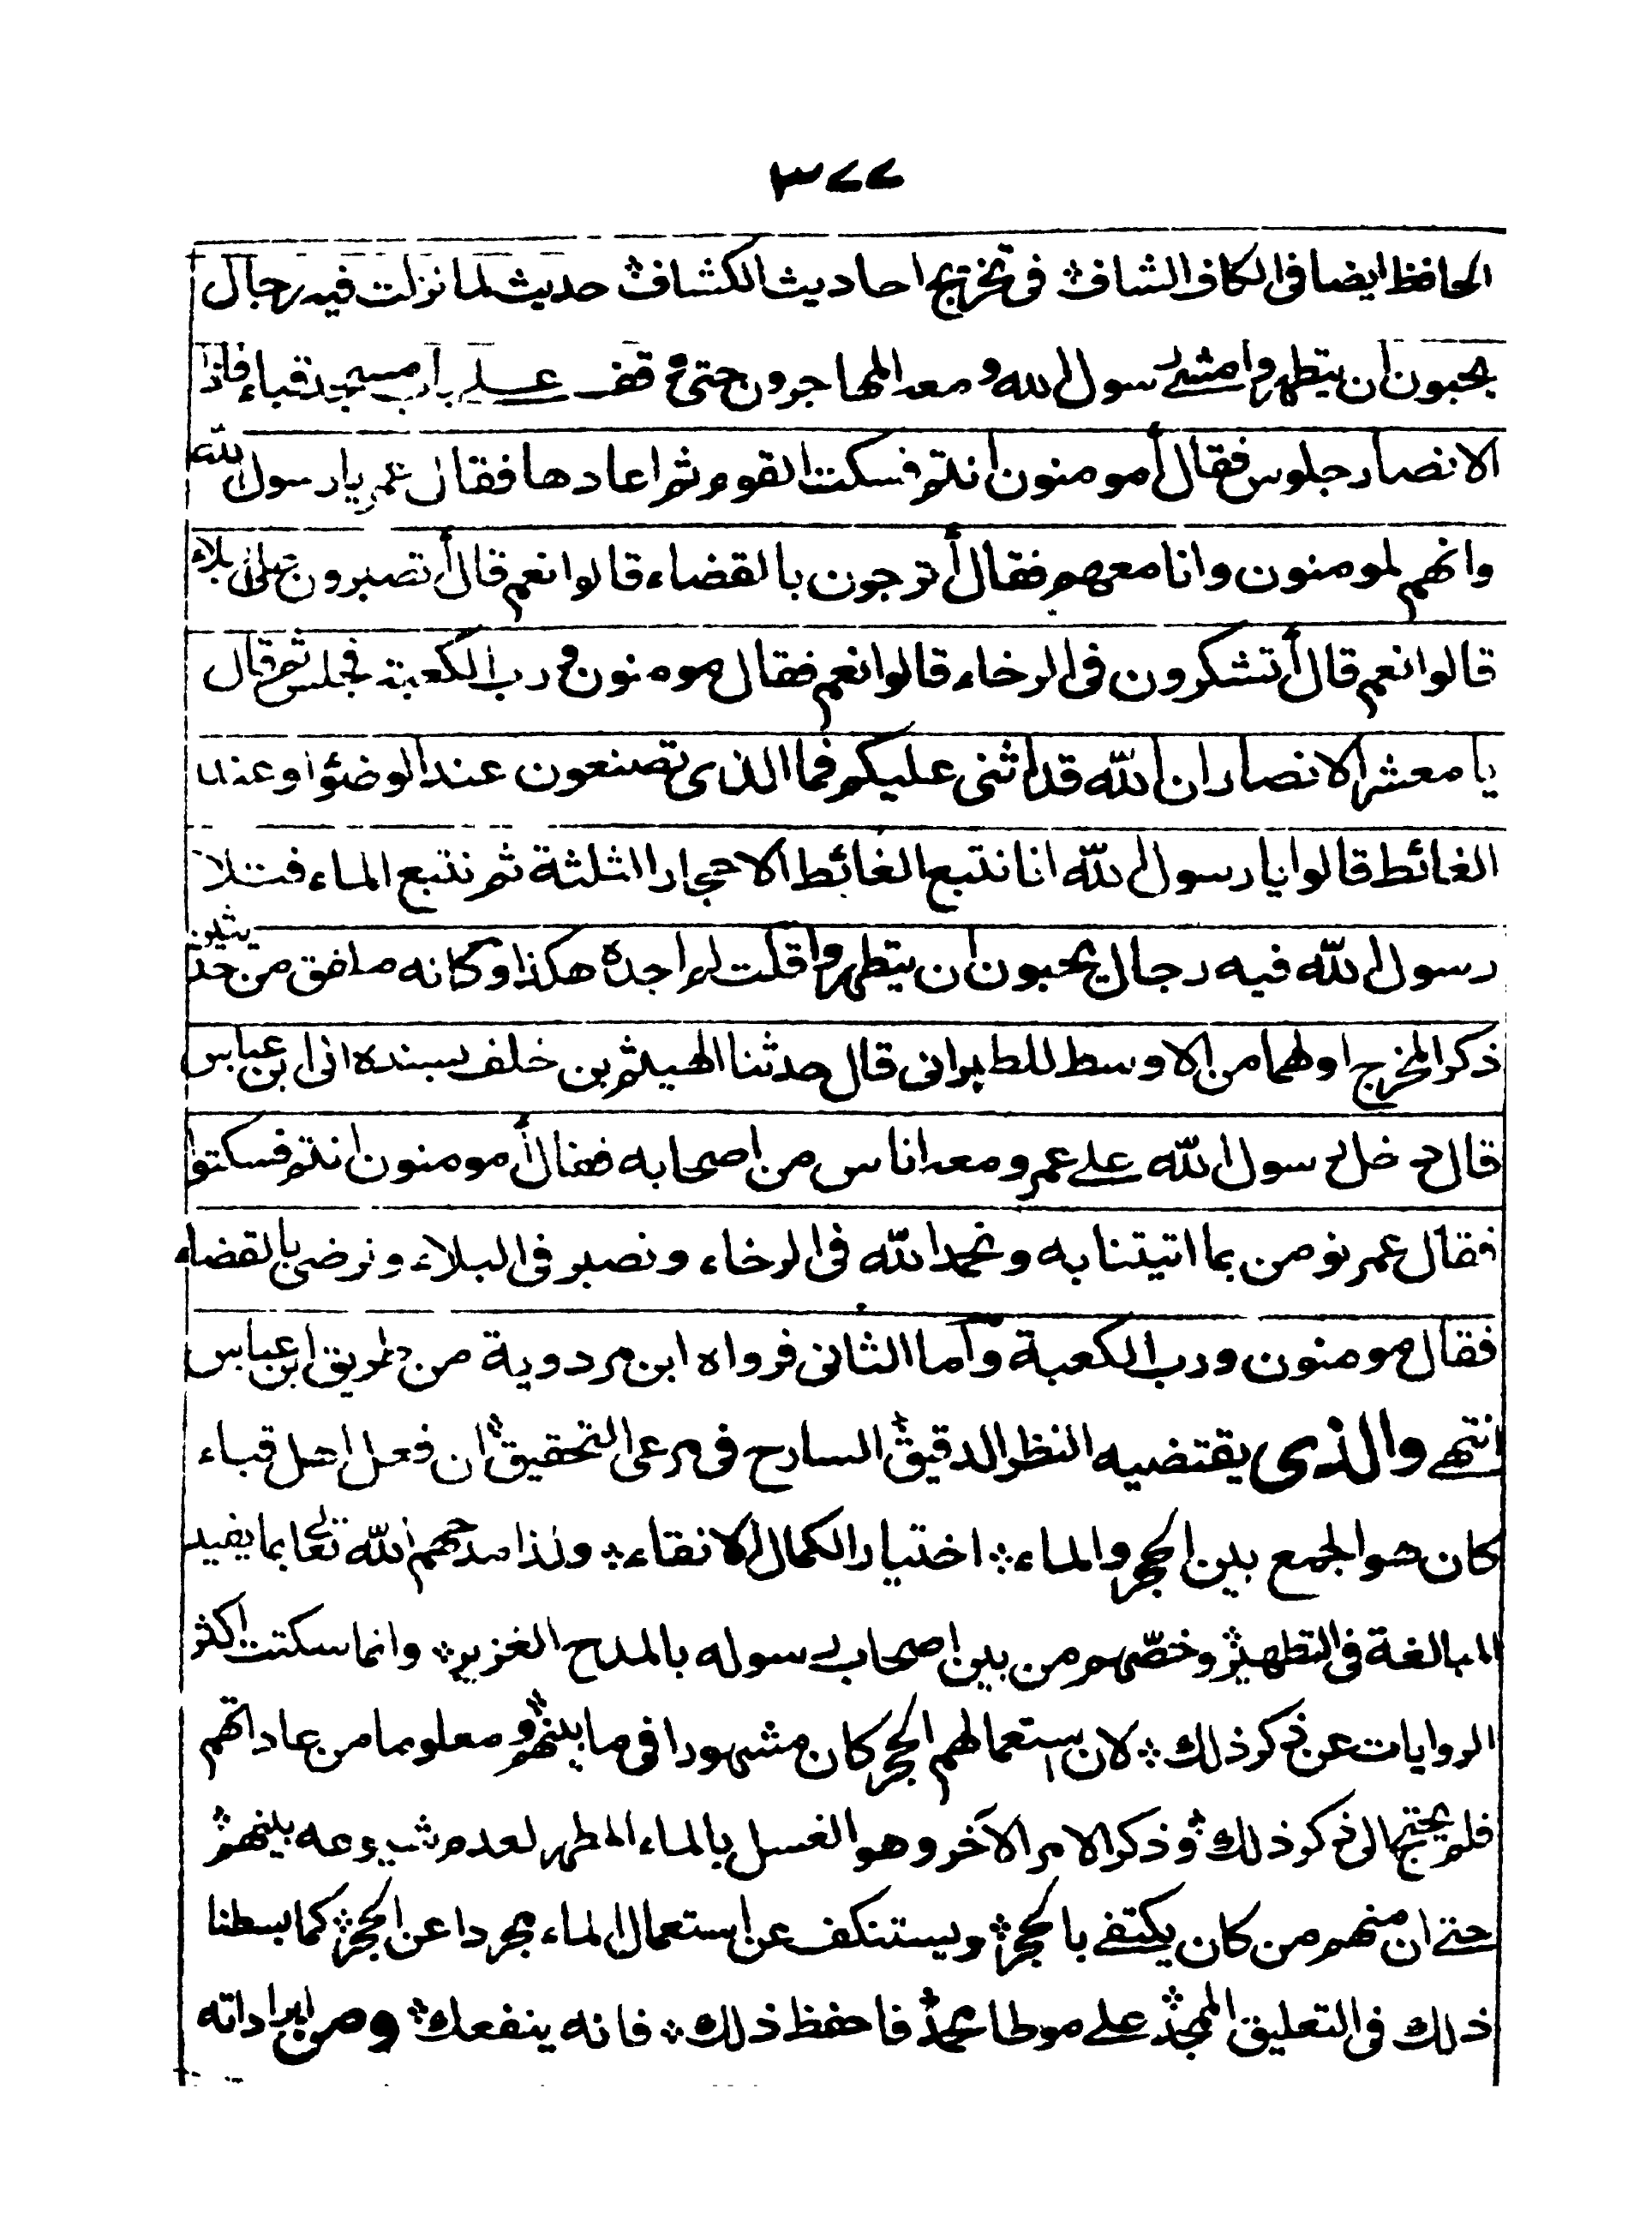 ٣٧٧
الحافظ ايضا فى الكاف الشاف ÷ فى تخريج احاديث الكشاف ÷ حديث لما نزلت فيه رجال
يحبون ان يتطهروا مشے رسول الله و معه المهاجرون حتى وقف علے باب مسجد قباء فاذا
الانصار جلوس فقال أمومنون انتم فسكت القوم ثم اعادها فقال عمر يا رسول الله
وانهم لمومنون وانا معهم فقال أ ترجون بالقضاء قالوا نعم قال أ تصبرون على البلاء
قالوا نعم قال أ تشكرون فى الرخاء قالوا نعم فقال مومنون و رب الكعبة فجلس ثم قال
يا معشر الانصار ان الله قد اثنى عليكم فما الذى تصنعون عند الوضوء او عند
الغائط قالوا يا رسول الله انا نتبع الغائط الاحجار الثلثة ثم نتبع الماء فتلا
رسول الله فيه رجال يحبون ان يتطهروا قلت لم اجده هكذا وكانه ملفق من حديثين
ذكر المخرج اولهما من الاوسط للطبرانى قال حدثنا الهيثم بن خلف بسنده الى ابن عباس
قال دخل رسول الله علے عمر و معه اناس من اصحابه فقال أ مومنون انتم فسكتوا
فقال عمر نومن بما اتيتنا به و نحمد الله فى الرخاء و نصبر فى البلاء و نرضى بالقضاء
فقال مومنون ورب الكعبة وأما الثانى فرواه ابن مردوية من طريق ابن عباس
انتهے والذى يقتضيه النظر الدقيق ÷ السارح فى مرعى التحقيق ÷ ان فعل اهل قباء
كان هو الجمع بين الحجر والماء ÷ اختيارا لكمال الانقاء ÷ ولذا مدحهم الله تعالى بما يفيد
المبالغة فى التطهير ÷ وخصّهم من بين اصحاب رسوله بالمدح الغزير ÷ وانما سكتت اكثر
الروايات عن ذكر ذلك ÷ لان استعمالهم الحجر كان مشهورا فى ما بينهم ÷ و معلوما من عاداتهم
فلم يحتج الى ذكر ذلك ÷ و ذكر الامر الآخر وهو الغسل بالماء المطهر لعدم شيوعه بينهم ÷
حتے ان منهم من كان يكتفے بالحجر ÷ ويستنكف عن استعمال الماء مجردا عن الحجر ÷ كما بسطنا
ذلك فى التعليق الممجد ÷ علے موطا محمد ÷ فاحفظ ذلك ÷ فانه ينفعك ÷ ومن ايراداته